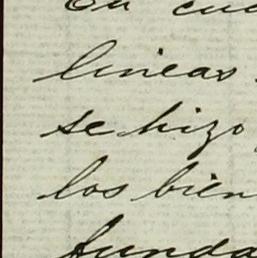 En cu
lineas
se hizo
los bien
funda